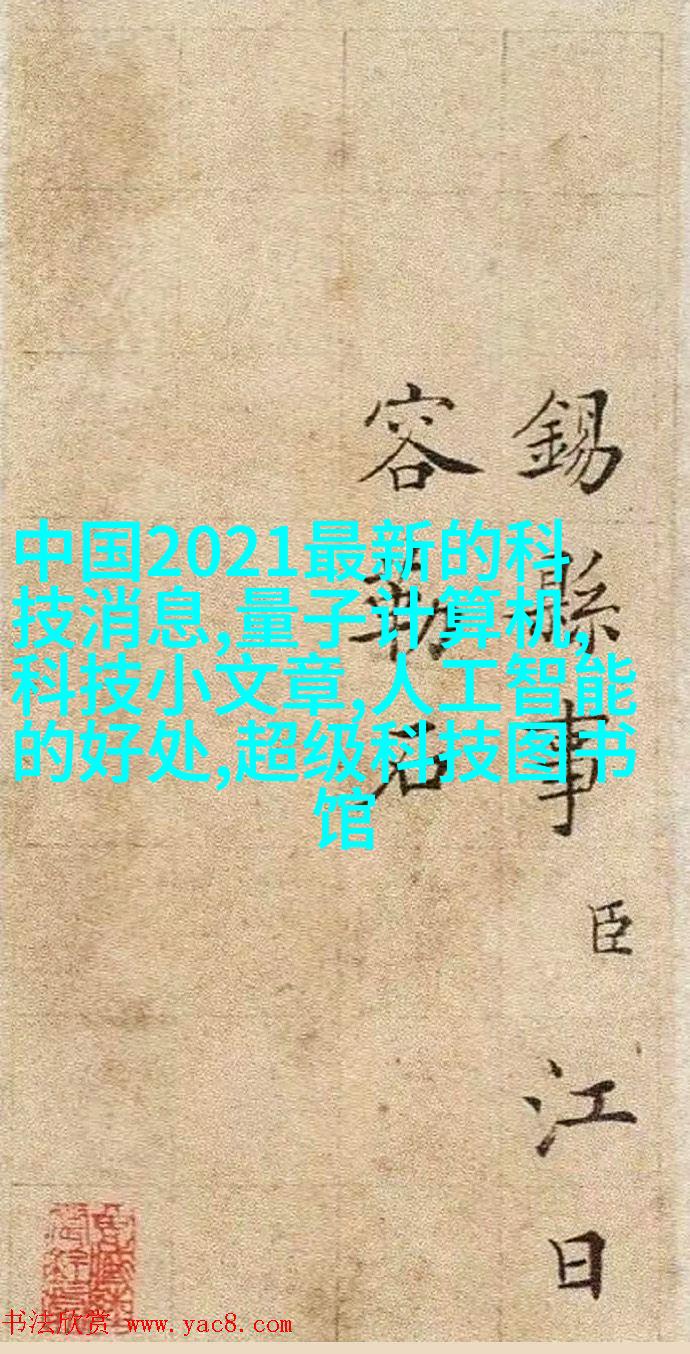 中国2021最新的科
技消息,量子计算机,
科技小文章,人工智能
的好处,超级科技图书
馆
錫縣事臣江日
容勒石
书法欣赏 www.yac8.com